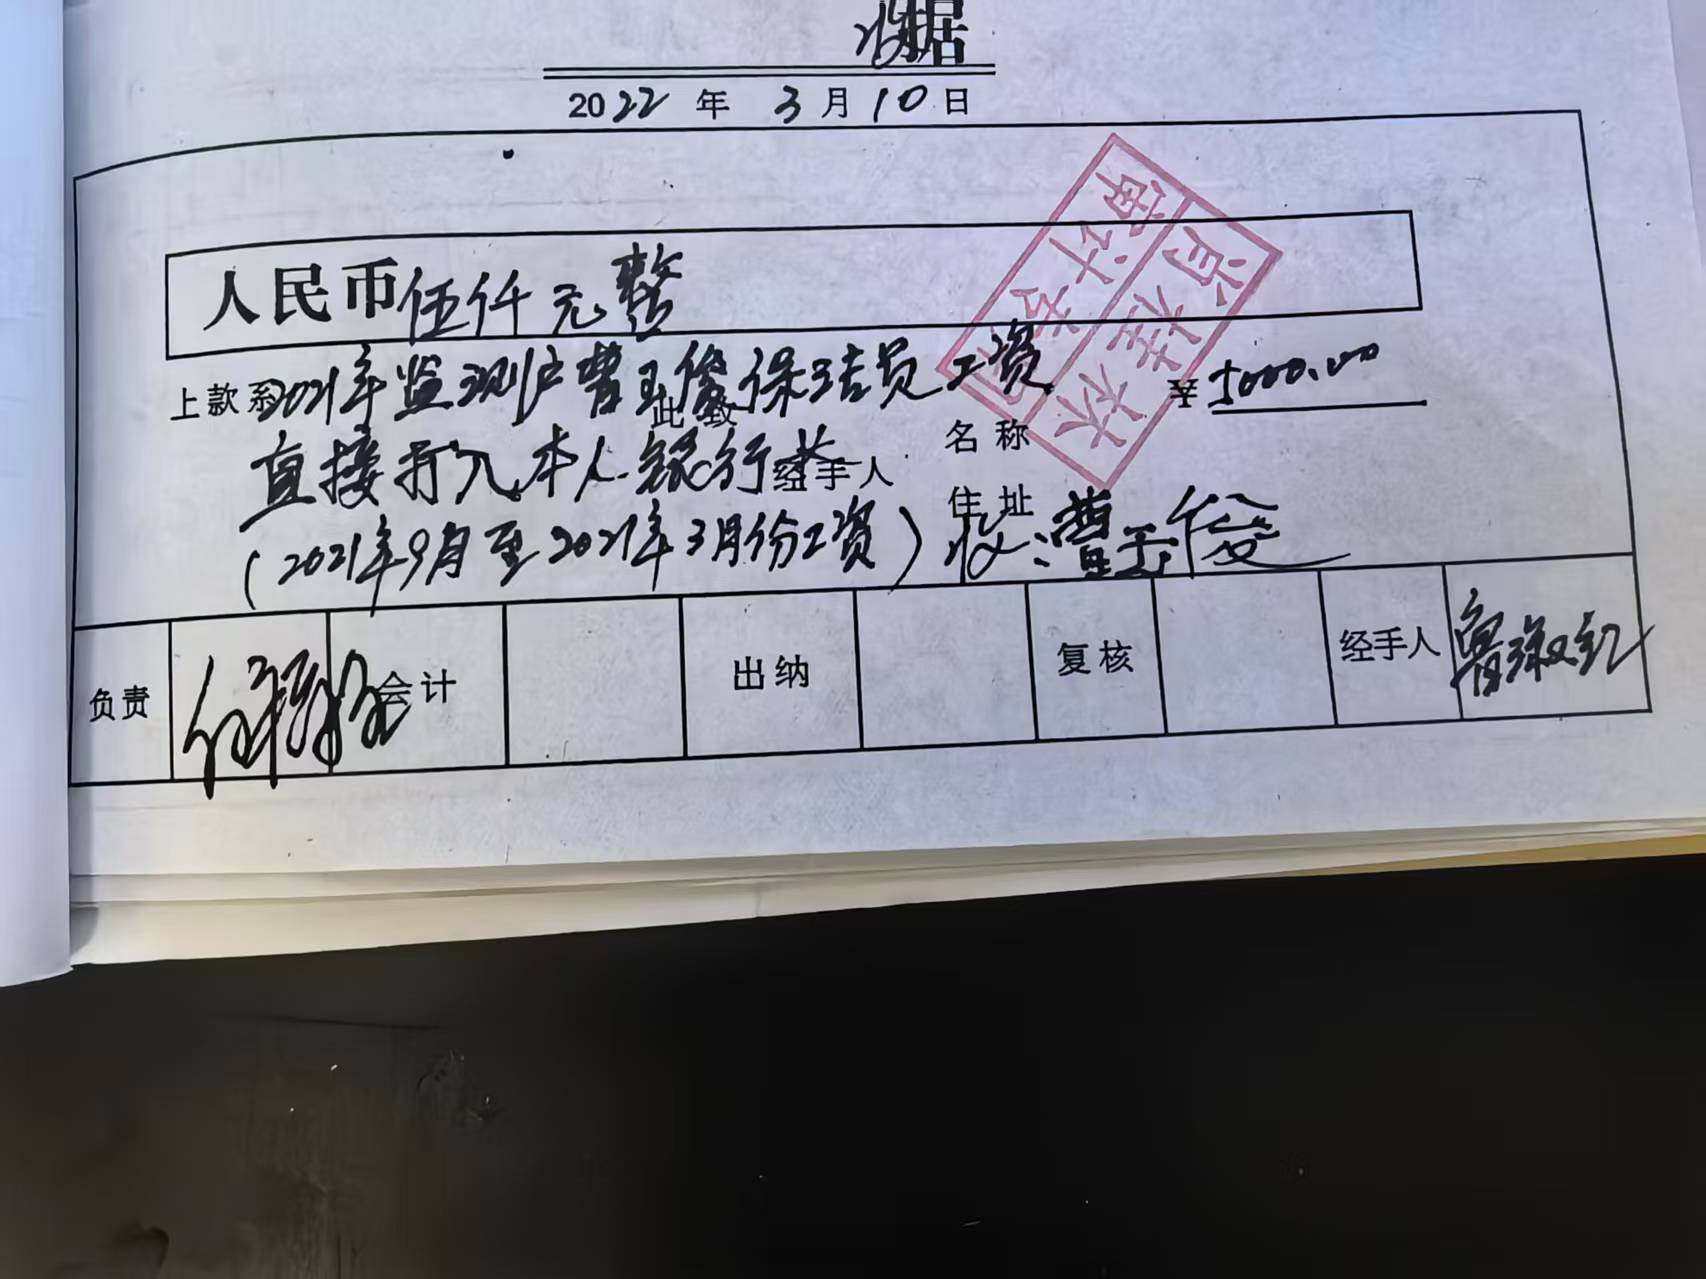 收据
2022年3月10日
人民币伍仟元整
上款系2021年监测户曹玉俊保洁员工资
¥5000.00
此致
直接打入本人银行卡
经手人
名称
住址
(2021年9月至2021年3月份工资)收:曹玉俊
审计专用
肖桂林
负责
会计
出纳
复核
经手人 曹淑红